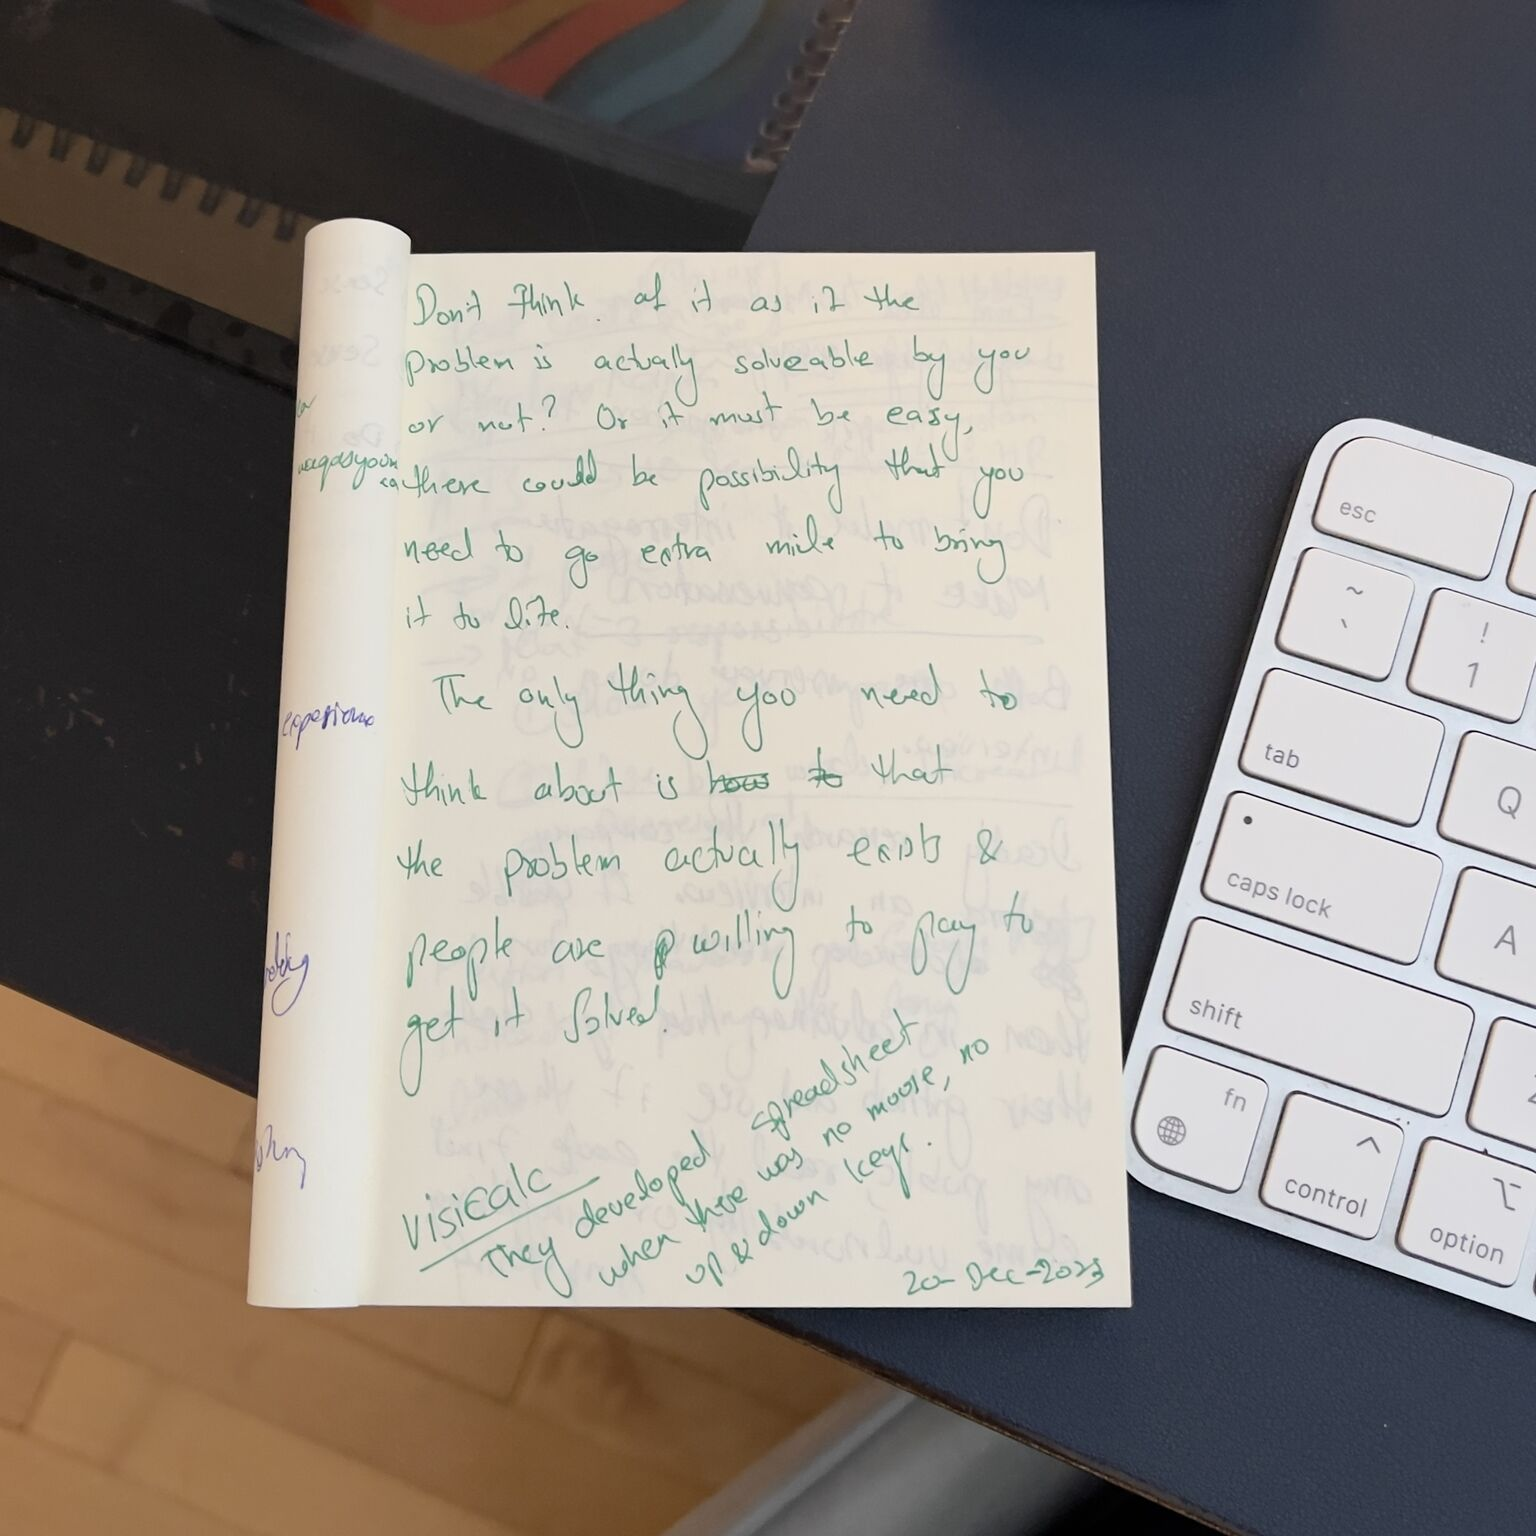 Don't think of it as if the
problem is actually solveable by you
or not? Or it must be easy,
there could be possibility that you
need to go extra mile to bring
it to life.
The only thing you need to
think about is how to that
the problem actually exists &
people are willing to pay to
get it solved.
VISICALC
They developed spreadsheet
when there was no mouse, no
up & down keys.
20-Dec-2023
esc
~
`
!
1
tab
Q
caps lock
A
shift
fn
control
option